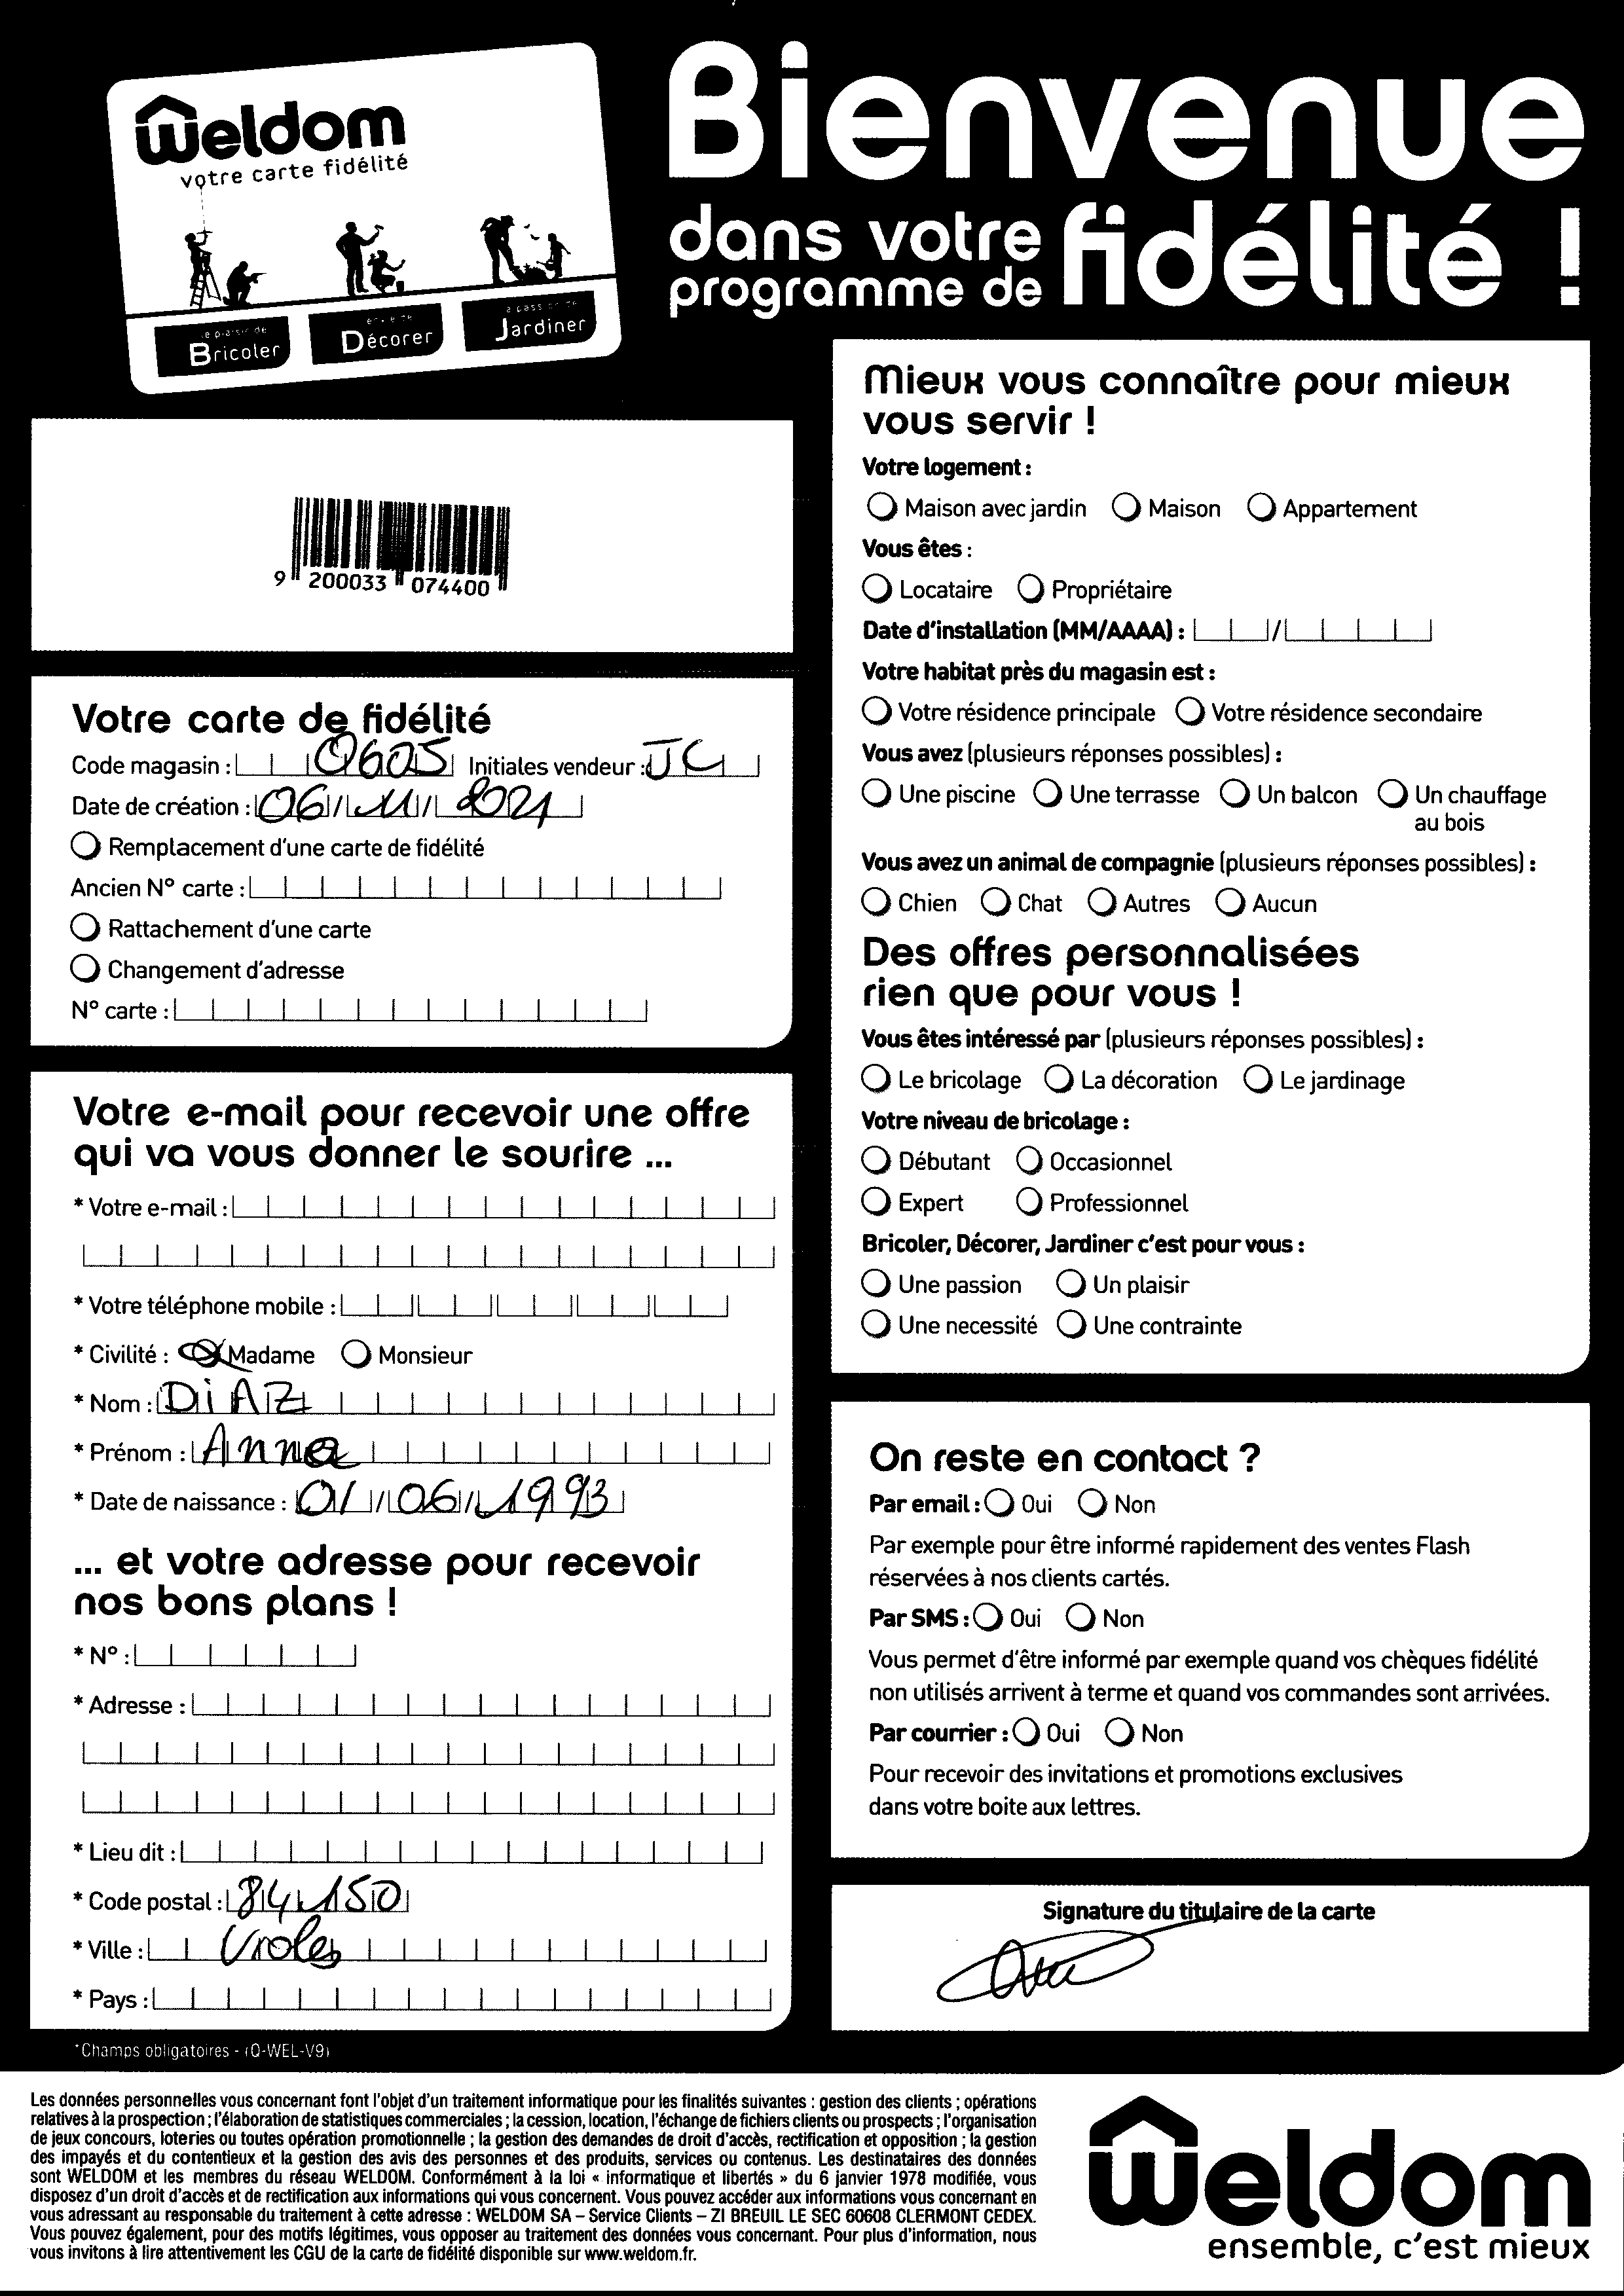 Weldom
votre carte fidélité
Bienvenue
dans votre
programme de fidélité !
le plaisir de
Bricoler
Décorer
Jardiner
9 200033 074400
Votre carte de fidélité
Code magasin : 0605 Initiales vendeur : JC
Date de création : 06/11/2021
Remplacement d'une carte de fidélité
Ancien N° carte :
Rattachement d'une carte
Changement d'adresse
N° carte :
Votre e-mail pour recevoir une offre
qui va vous donner le sourire ...
* Votre e-mail :
* Votre téléphone mobile :
* Civilité : Madame Monsieur
* Nom : DiAZ
* Prénom : Anna
* Date de naissance : 01/06/1993
... et votre adresse pour recevoir
nos bons plans !
* N° :
* Adresse :
* Lieu dit :
* Code postal : 84150
* Ville : Violes
* Pays :
*Champs obligatoires - (Q-WEL-V9)
Mieux vous connaître pour mieux
vous servir !
Votre logement :
Maison avec jardin Maison Appartement
Vous êtes :
Locataire Propriétaire
Date d'installation (MM/AAAA) : /
Votre habitat près du magasin est :
Votre résidence principale Votre résidence secondaire
Vous avez (plusieurs réponses possibles) :
Une piscine Une terrasse Un balcon Un chauffage
au bois
Vous avez un animal de compagnie (plusieurs réponses possibles) :
Chien Chat Autres Aucun
Des offres personnalisées
rien que pour vous !
Vous êtes intéressé par (plusieurs réponses possibles) :
Le bricolage La décoration Le jardinage
Votre niveau de bricolage :
Débutant Occasionnel
Expert Professionnel
Bricoler, Décorer, Jardiner c'est pour vous :
Une passion Un plaisir
Une necessité Une contrainte
On reste en contact ?
Par email : Oui Non
Par exemple pour être informé rapidement des ventes Flash
réservées à nos clients cartés.
Par SMS : Oui Non
Vous permet d'être informé par exemple quand vos chèques fidélité
non utilisés arrivent à terme et quand vos commandes sont arrivées.
Par courrier : Oui Non
Pour recevoir des invitations et promotions exclusives
dans votre boite aux lettres.
Signature du titulaire de la carte
Les données personnelles vous concernant font l'objet d'un traitement informatique pour les finalités suivantes : gestion des clients ; opérations
relatives à la prospection ; l'élaboration de statistiques commerciales ; la cession, location, l'échange de fichiers clients ou prospects ; l'organisation
de jeux concours, loteries ou toutes opération promotionnelle ; la gestion des demandes de droit d'accès, rectification et opposition ; la gestion
des impayés et du contentieux et la gestion des avis des personnes et des produits, services ou contenus. Les destinataires des données
sont WELDOM et les membres du réseau WELDOM. Conformément à la loi « informatique et libertés » du 6 janvier 1978 modifiée, vous
disposez d'un droit d'accès et de rectification aux informations qui vous concernent. Vous pouvez accéder aux informations vous concernant en
vous adressant au responsable du traitement à cette adresse : WELDOM SA – Service Clients – ZI BREUIL LE SEC 60608 CLERMONT CEDEX.
Vous pouvez également, pour des motifs légitimes, vous opposer au traitement des données vous concernant. Pour plus d'information, nous
vous invitons à lire attentivement les CGU de la carte de fidélité disponible sur www.weldom.fr.
Weldom
ensemble, c'est mieux